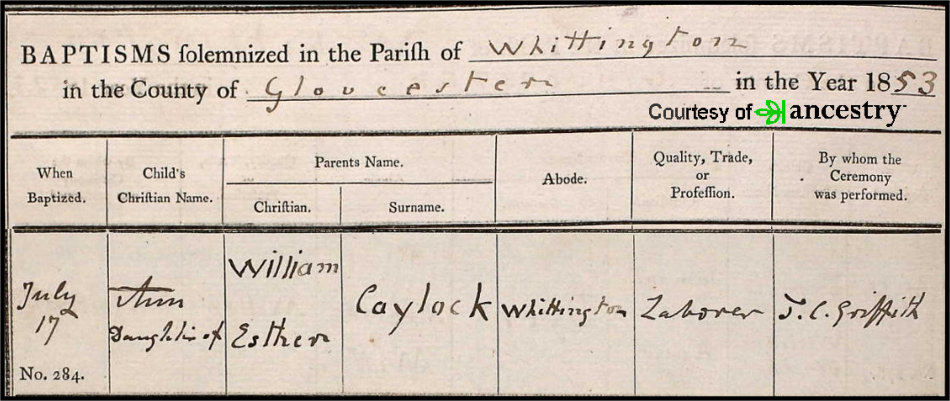 BAPTISMS ſolemnized in the Pariſh of Whittington
in the County of Gloucester in the Year 1853
Courtesy of ancestry
When
Baptized.
Child's
Chriſtian Name.
Parents Name.
Chriſtian.
Surname.
Abode.
Quality, Trade,
or
Profeſſion.
By whom the
Ceremony
was performed.
July
17
No. 284.
Ann
Daughter of
William
Esther
Caylock
Whittington
Laborer
T. C. Griffith